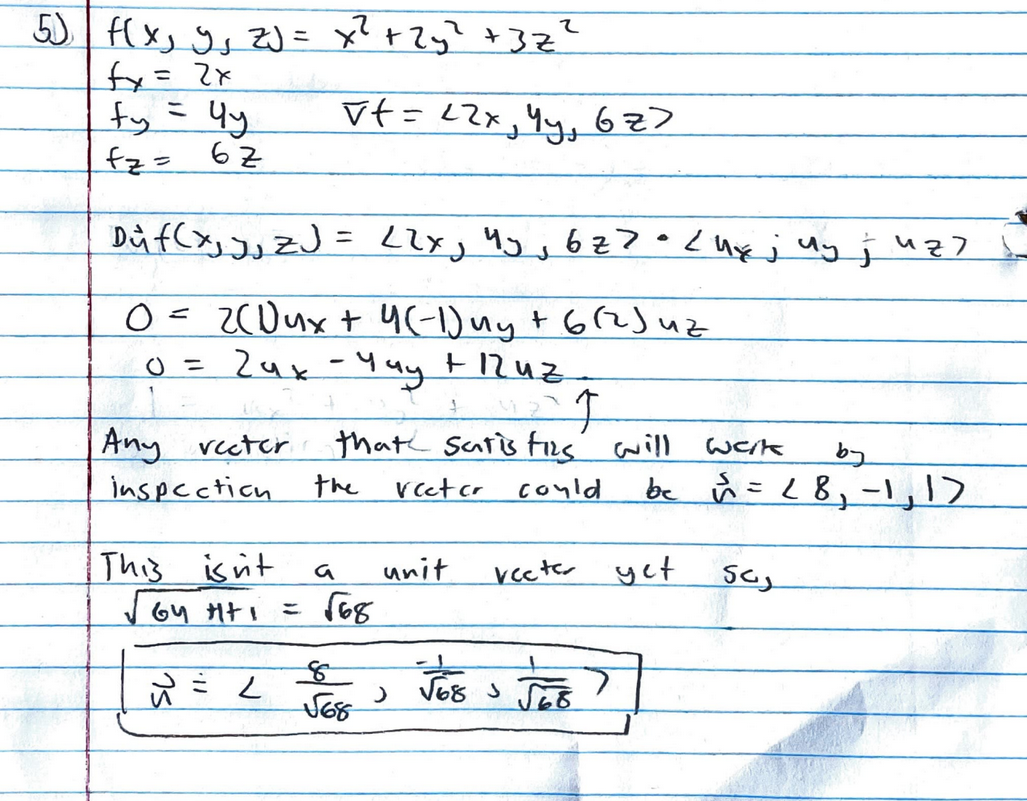 5) f(x, y, z) = x² + 2y² + 3z²
fx = 2x
fy = 4y ∇f = <2x, 4y, 6z>
fz = 6z
Dûf(x, y, z) = <2x, 4y, 6z> · <ux ; uy ; uz>
0 = 2(1)ux + 4(-1)uy + 6(2)uz
0 = 2ux - 4uy + 12uz
↑
Any vector that satisfies will work by
inspection the vector could be û = <8, -1, 1>
This isn't a unit vector yet so,
√64+1+1 = √68
u⃗ = < 8/√68 , -1/√68 , 1/√68 >